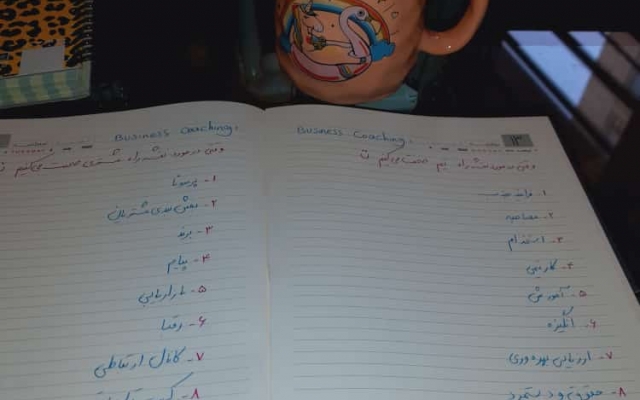 Business Coaching:
وقتی در مورد نقشه راه تیم صحبت می‌کنیم
۱- فرایند جذب
۲- مصاحبه
۳- استخدام
۴- کارتیمی
۵- آموزش
۶- انگیزه
۷- ارزیابی بهره وری
۸- حقوق و دستمزد
Business Coaching:
وقتی در مورد نقشه راه مشتری صحبت می‌کنیم
۱- پرسونا
۲- بخش بندی مشتریان
۳- برند
۴- پیام
۵- بازاریابی
۶- رقبا
۷- کانال ارتباطی
۸-